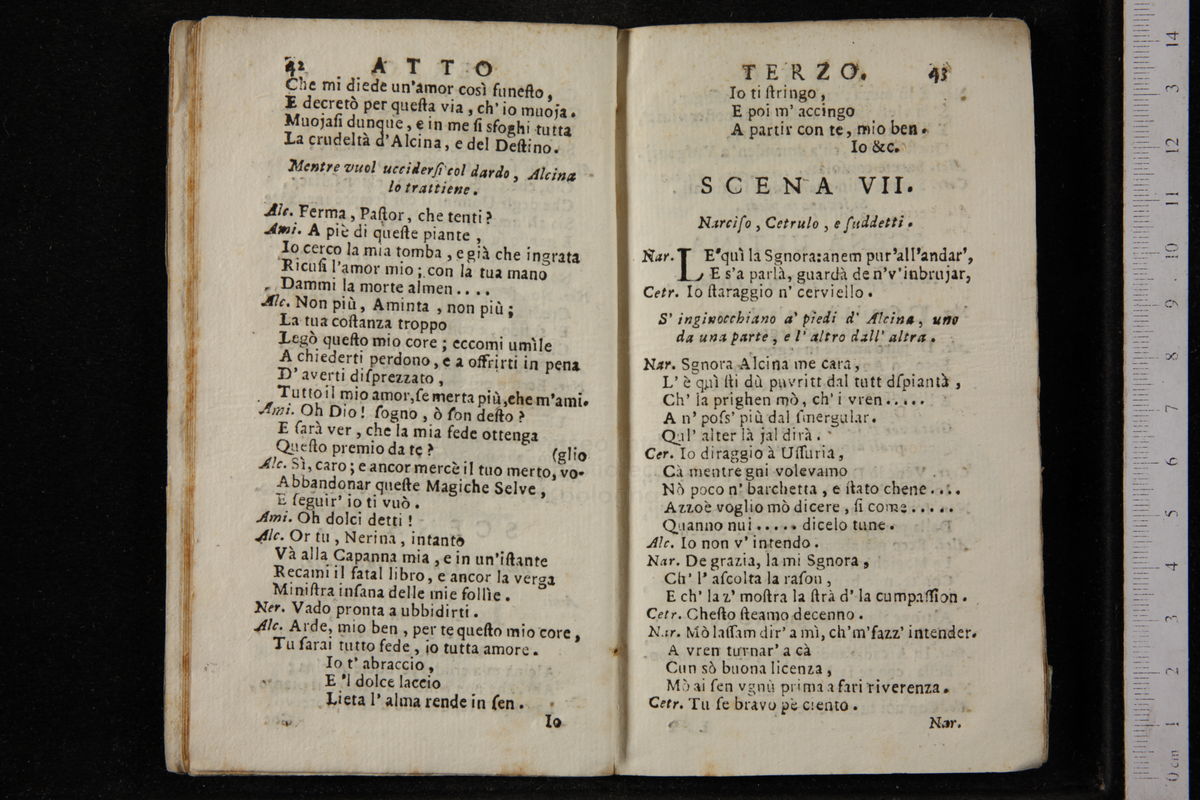 42 ATTO
Che mi diede un'amor così funeſto,
E decretò per queſta via, ch'io muoja.
Muojaſi dunque, e in me ſi sfoghi tutta
La crudeltà d'Alcina, e del Deſtino.
Mentre vuol ucciderſi col dardo, Alcina
lo trattiene.
Alc. Ferma, Paſtor, che tenti?
Ami. A piè di queſte piante,
Io cerco la mia tomba, e già che ingrata
Ricuſi l'amor mio; con la tua mano
Dammi la morte almen....
Alc. Non più, Aminta, non più;
La tua coſtanza troppo
Legò queſto mio core; eccomi umìle
A chiederti perdono, e a offrirti in pena
D'averti diſprezzato,
Tutto il mio amor, ſe merta più, che m'ami.
Ami. Oh Dio! ſogno, ò ſon deſto?
E ſarà ver, che la mia fede ottenga
Queſto premio da te? (glio
Alc. Sì, caro; e ancor mercè il tuo merto, vo-
Abbandonar queſte Magiche Selve,
E ſeguir' io ti vuò.
Ami. Oh dolci detti!
Alc. Or tu, Nerina, intanto
Và alla Capanna mia, e in un'iſtante
Recami il fatal libro, e ancor la verga
Miniſtra inſana delle mie follìe.
Ner. Vado pronta a ubbidirti.
Alc. Arde, mio ben, per te queſto mio core,
Tu ſarai tutto fede, io tutta amore.
Io t'abraccio,
E 'l dolce laccio
Lieta l'alma rende in ſen.
Io
TERZO. 43
Io ti ſtringo,
E poi m'accingo
A partir con te, mio ben.
Io &c.
SCENA VII.
Narciſo, Cetrulo, e ſuddetti.
Nar. LE'quì la Sgnora: anem pur'all'andar',
E s'a parlà, guardà de n'v'inbrujar,
Cetr. Io ſtaraggio n'cerviello.
S'inginocchiano a' piedi d'Alcina, uno
da una parte, e l'altro dall'altra.
Nar. Sgnora Alcina me cara,
L'è quì ſti dù puvritt dal tutt dſpiantà,
Ch'la prighen mò, ch'i vren.....
A n'poſs'più dal ſmergular.
Qul'alter là jal dirà.
Cer. Io diraggio à Uſſuria,
Cà mentre gni volevamo
Nò poco n'barchetta, e ſtato chene....
Azzoè voglio mò dicere, ſi come.....
Quanno nui..... dicelo tune.
Alc. Io non v'intendo.
Nar. De grazia, la mi Sgnora,
Ch'l'aſcolta la raſon,
E ch'la z'moſtra la ſtrà d'la cumpaſſion.
Cetr. Cheſto ſteamo decenno.
Nar. Mò laſſam dir'a mì, ch'm'fazz'intender.
A vren turnar'a cà
Cun sò buona licenza,
Mò ai ſen vgnù prima a fari riverenza.
Cetr. Tu ſe bravo pè ciento.
Nar.